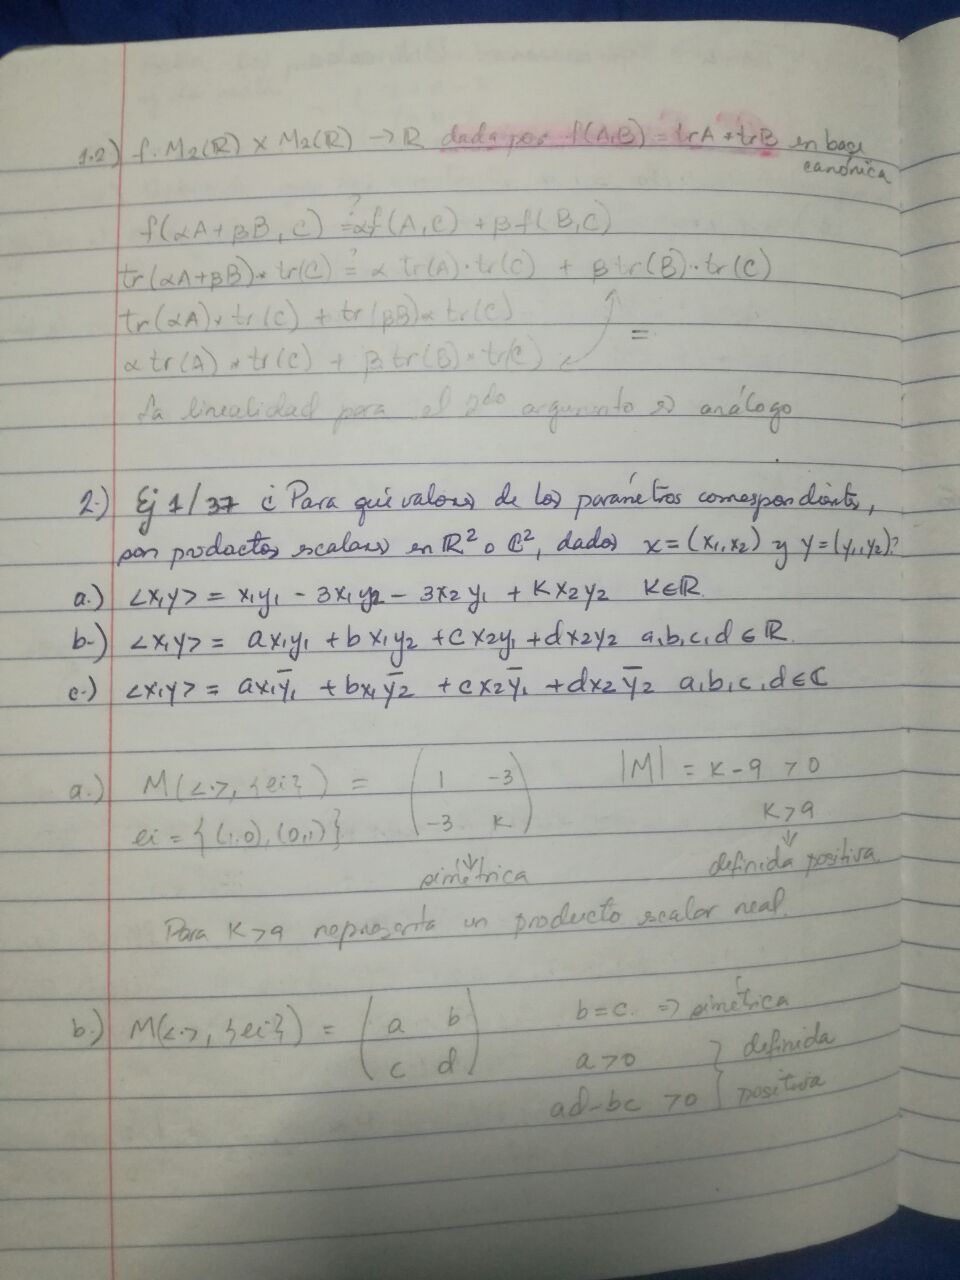 1.2) f: M₂(ℝ) × M₂(ℝ) → ℝ dada por f(A,B) = trA * trB en base
canónica
f(αA + βB, C) ≟ αf(A,C) + βf(B,C)
tr(αA+βB)*tr(C) ≟ α tr(A)·tr(C) + βtr(B)·tr(C)
tr(αA)*tr(C) + tr(βB)* tr(C)
α tr(A) * tr(C) + β tr(B)*tr(C) =
La linealidad para el 2do argumento es análogo
2.) Ej 1/37 ¿ Para qué valores de los parámetros correspondientes,
son productos escalares en ℝ² o ℂ², dados x=(x₁,x₂) y y=(y₁,y₂)?
a.) <x,y> = x₁y₁ - 3x₁y₂ - 3x₂y₁ + Kx₂y₂ K∈ℝ.
b.) <x,y> = ax₁y₁ + bx₁y₂ + cx₂y₁ + dx₂y₂ a,b,c,d ∈ ℝ.
c.) <x,y> = ax₁ȳ₁ + bx₁ȳ₂ + cx₂ȳ₁ + dx₂ȳ₂ a,b,c,d ∈ ℂ
a.) M(<·>, {ei}) = ( 1 -3 ) |M| = K-9 > 0
ei = {(1,0),(0,1)} ( -3 K ) K>9
simétrica definida positiva
Para K>9 representa un producto escalar real.
b.) M(<·>, {ei}) = ( a b ) b=c. => simétrica
( c d ) a>0 } definida
ad-bc >0 } positiva